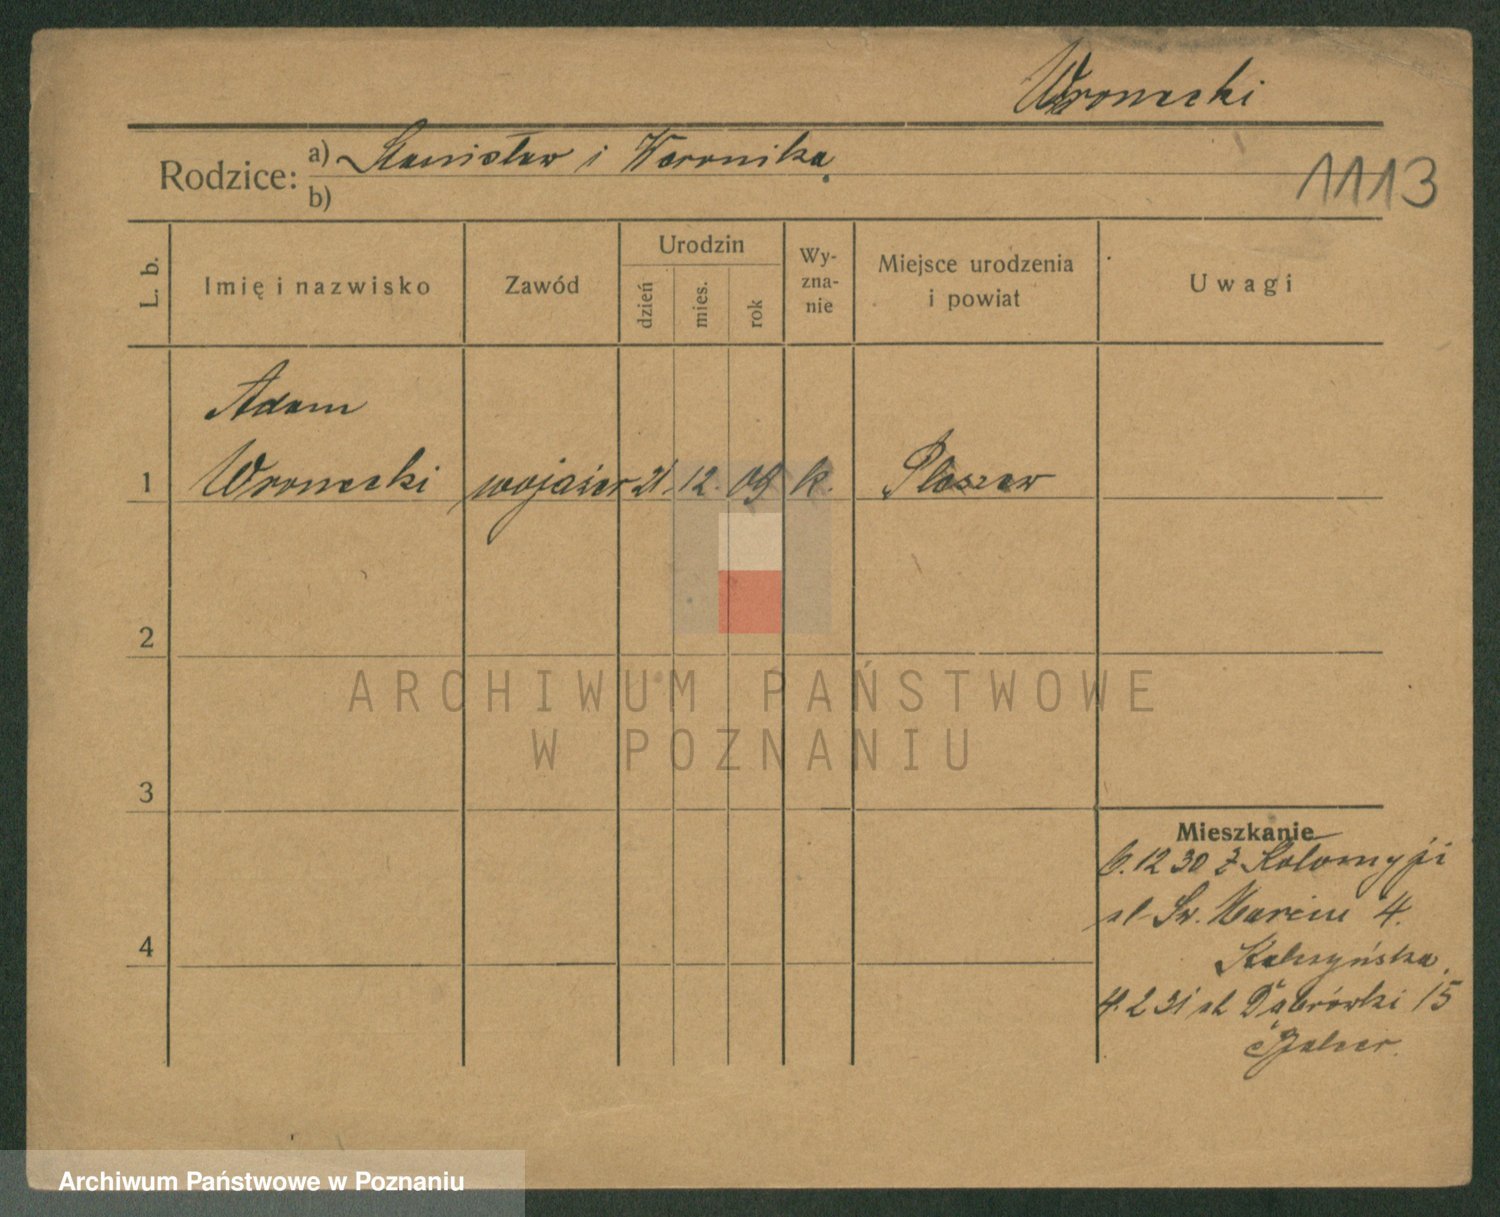 Wronecki
Rodzice: a) Stanisław i Weronika
b)
1113
L. b.
Imię i nazwisko
Zawód
Urodzin
dzień
mies.
rok
Wy-
zna-
nie
Miejsce urodzenia
i powiat
Uwagi
Adam
1 Wronecki wojażer 21. 12. 09 k. Pleszew
2
3
4
Mieszkanie
6. 12 30 z Kołomyji
ul Św. Marcin 4.
4. 2 31 ul Dąbrówki 15
ARCHIWUM PAŃSTWOWE
W POZNANIU
Archiwum Państwowe w Poznaniu